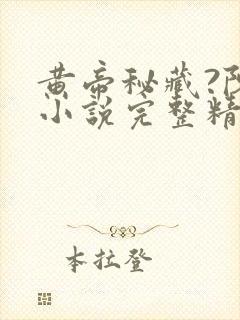 黄帝秘藏?
小说完整精
本拉登